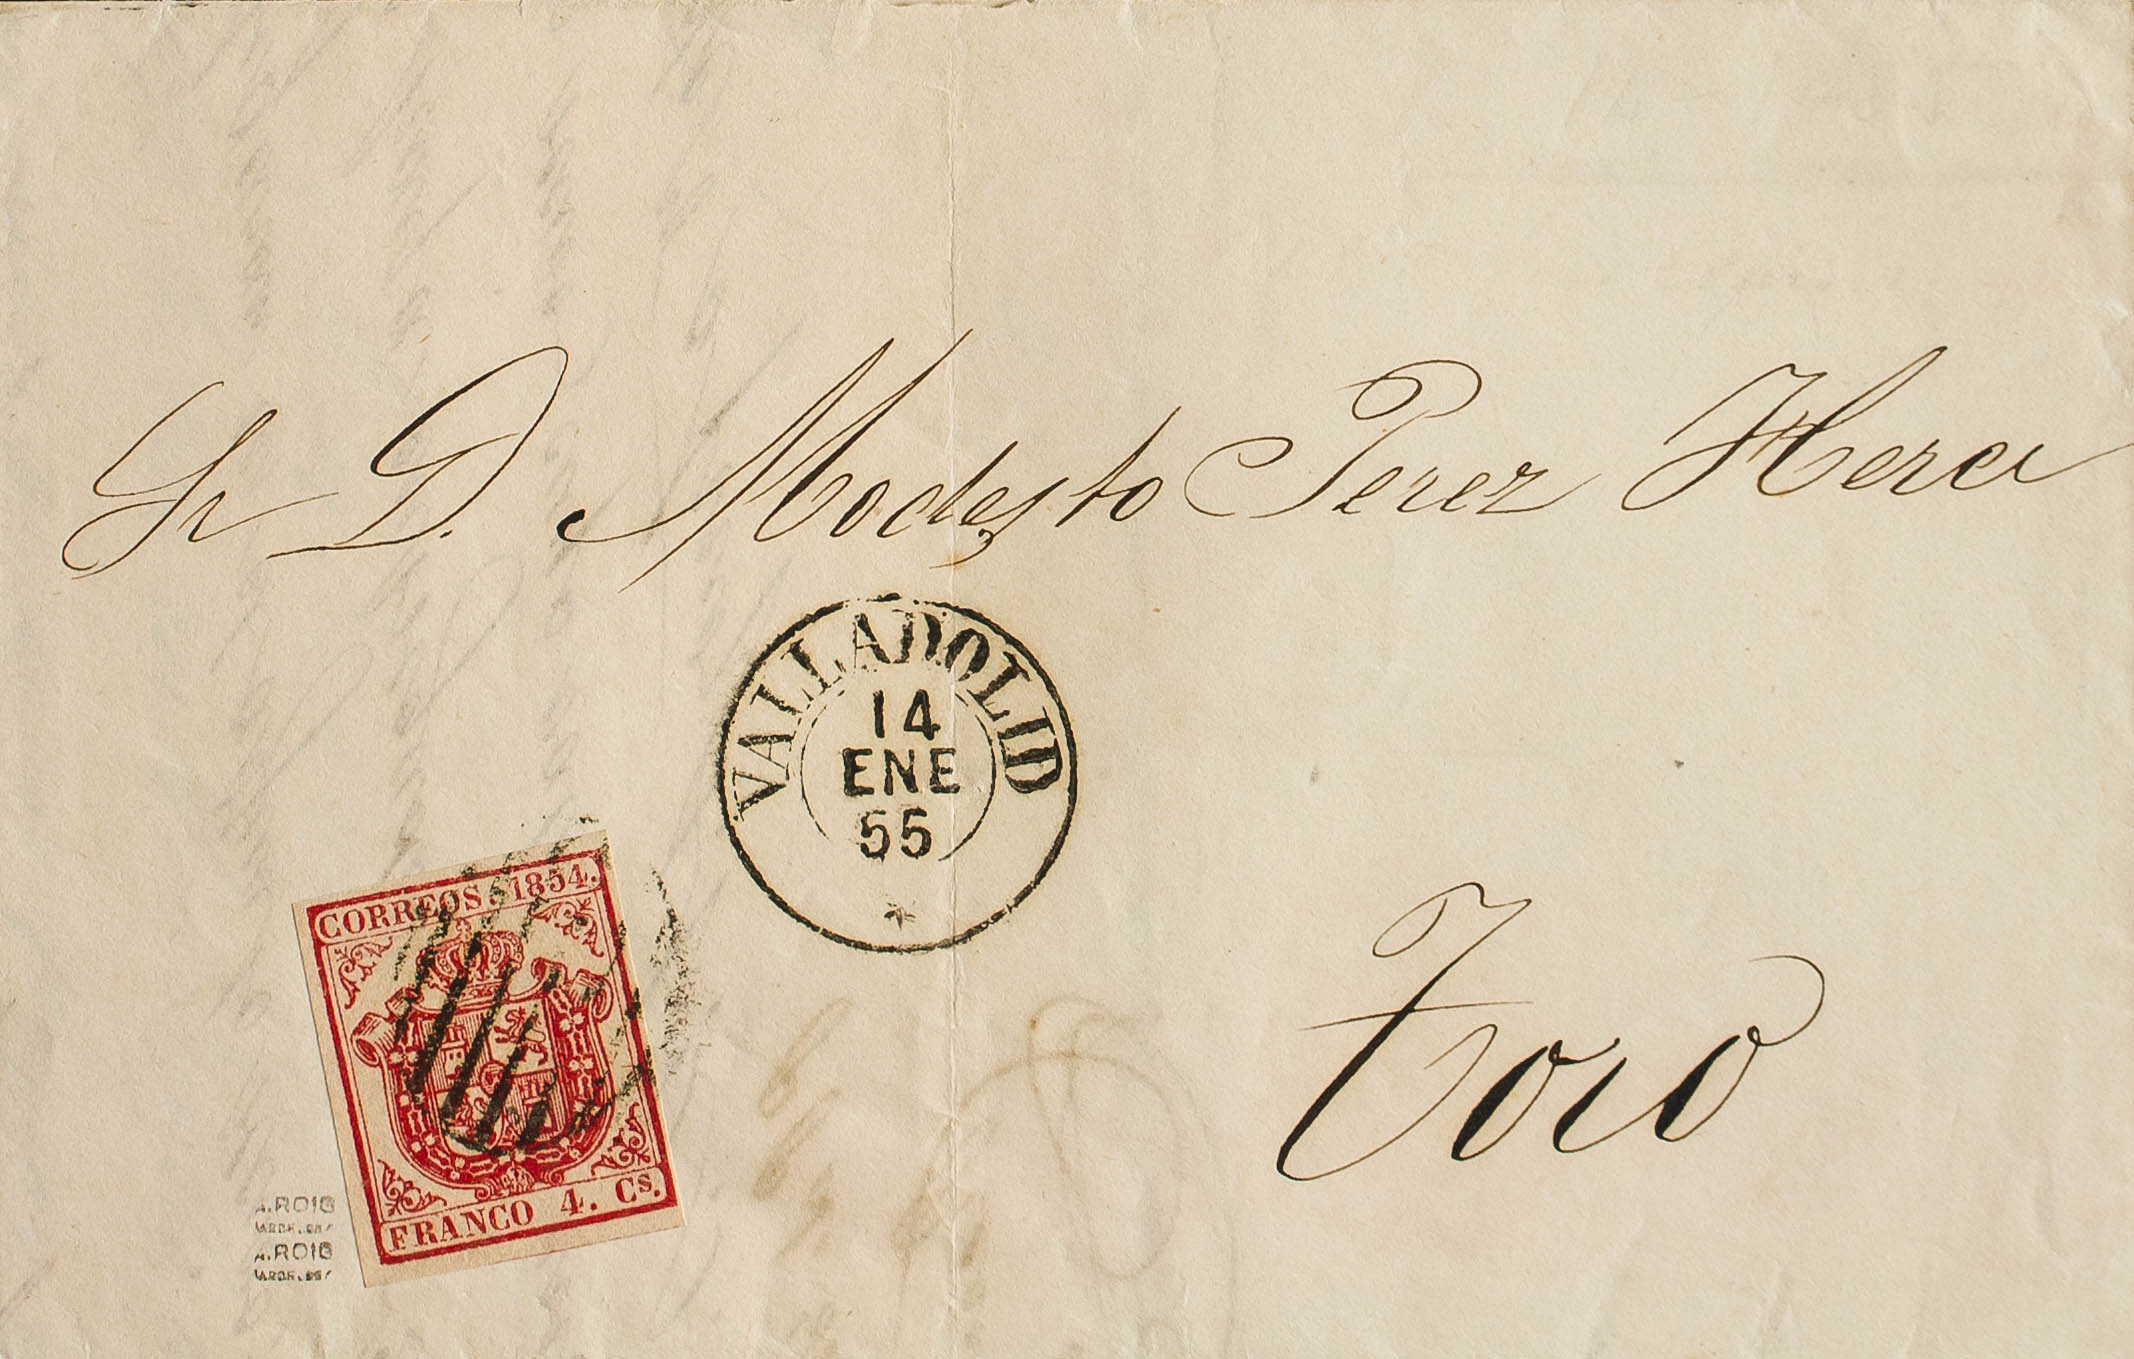 Sr D. Modesto Perez Herer
VALLADOLID
14
ENE
55
Toro
CORREOS. 1854.
FRANCO 4. Cs.
A.ROIG
A.ROIG